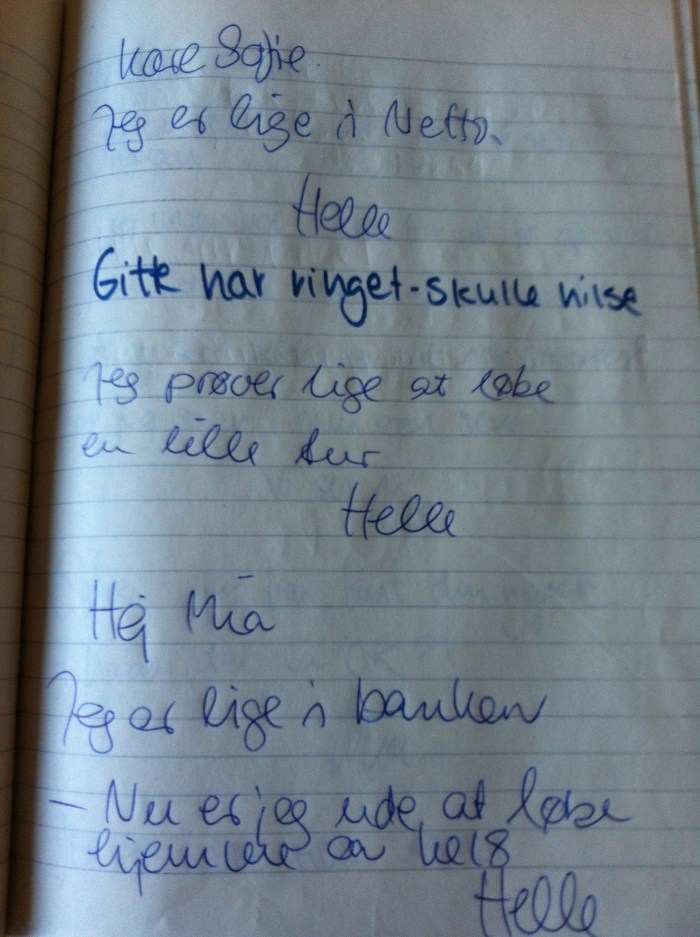 Kære Sofie.
Jeg er lige i Netto.
Helle
Gitte har ringet - skulle hilse
Jeg prøver lige at løbe
en lille tur
Helle
Hej Mia
Jeg er lige i banken
- Nu er jeg ude at løbe
hjemme ca kl 18
Helle